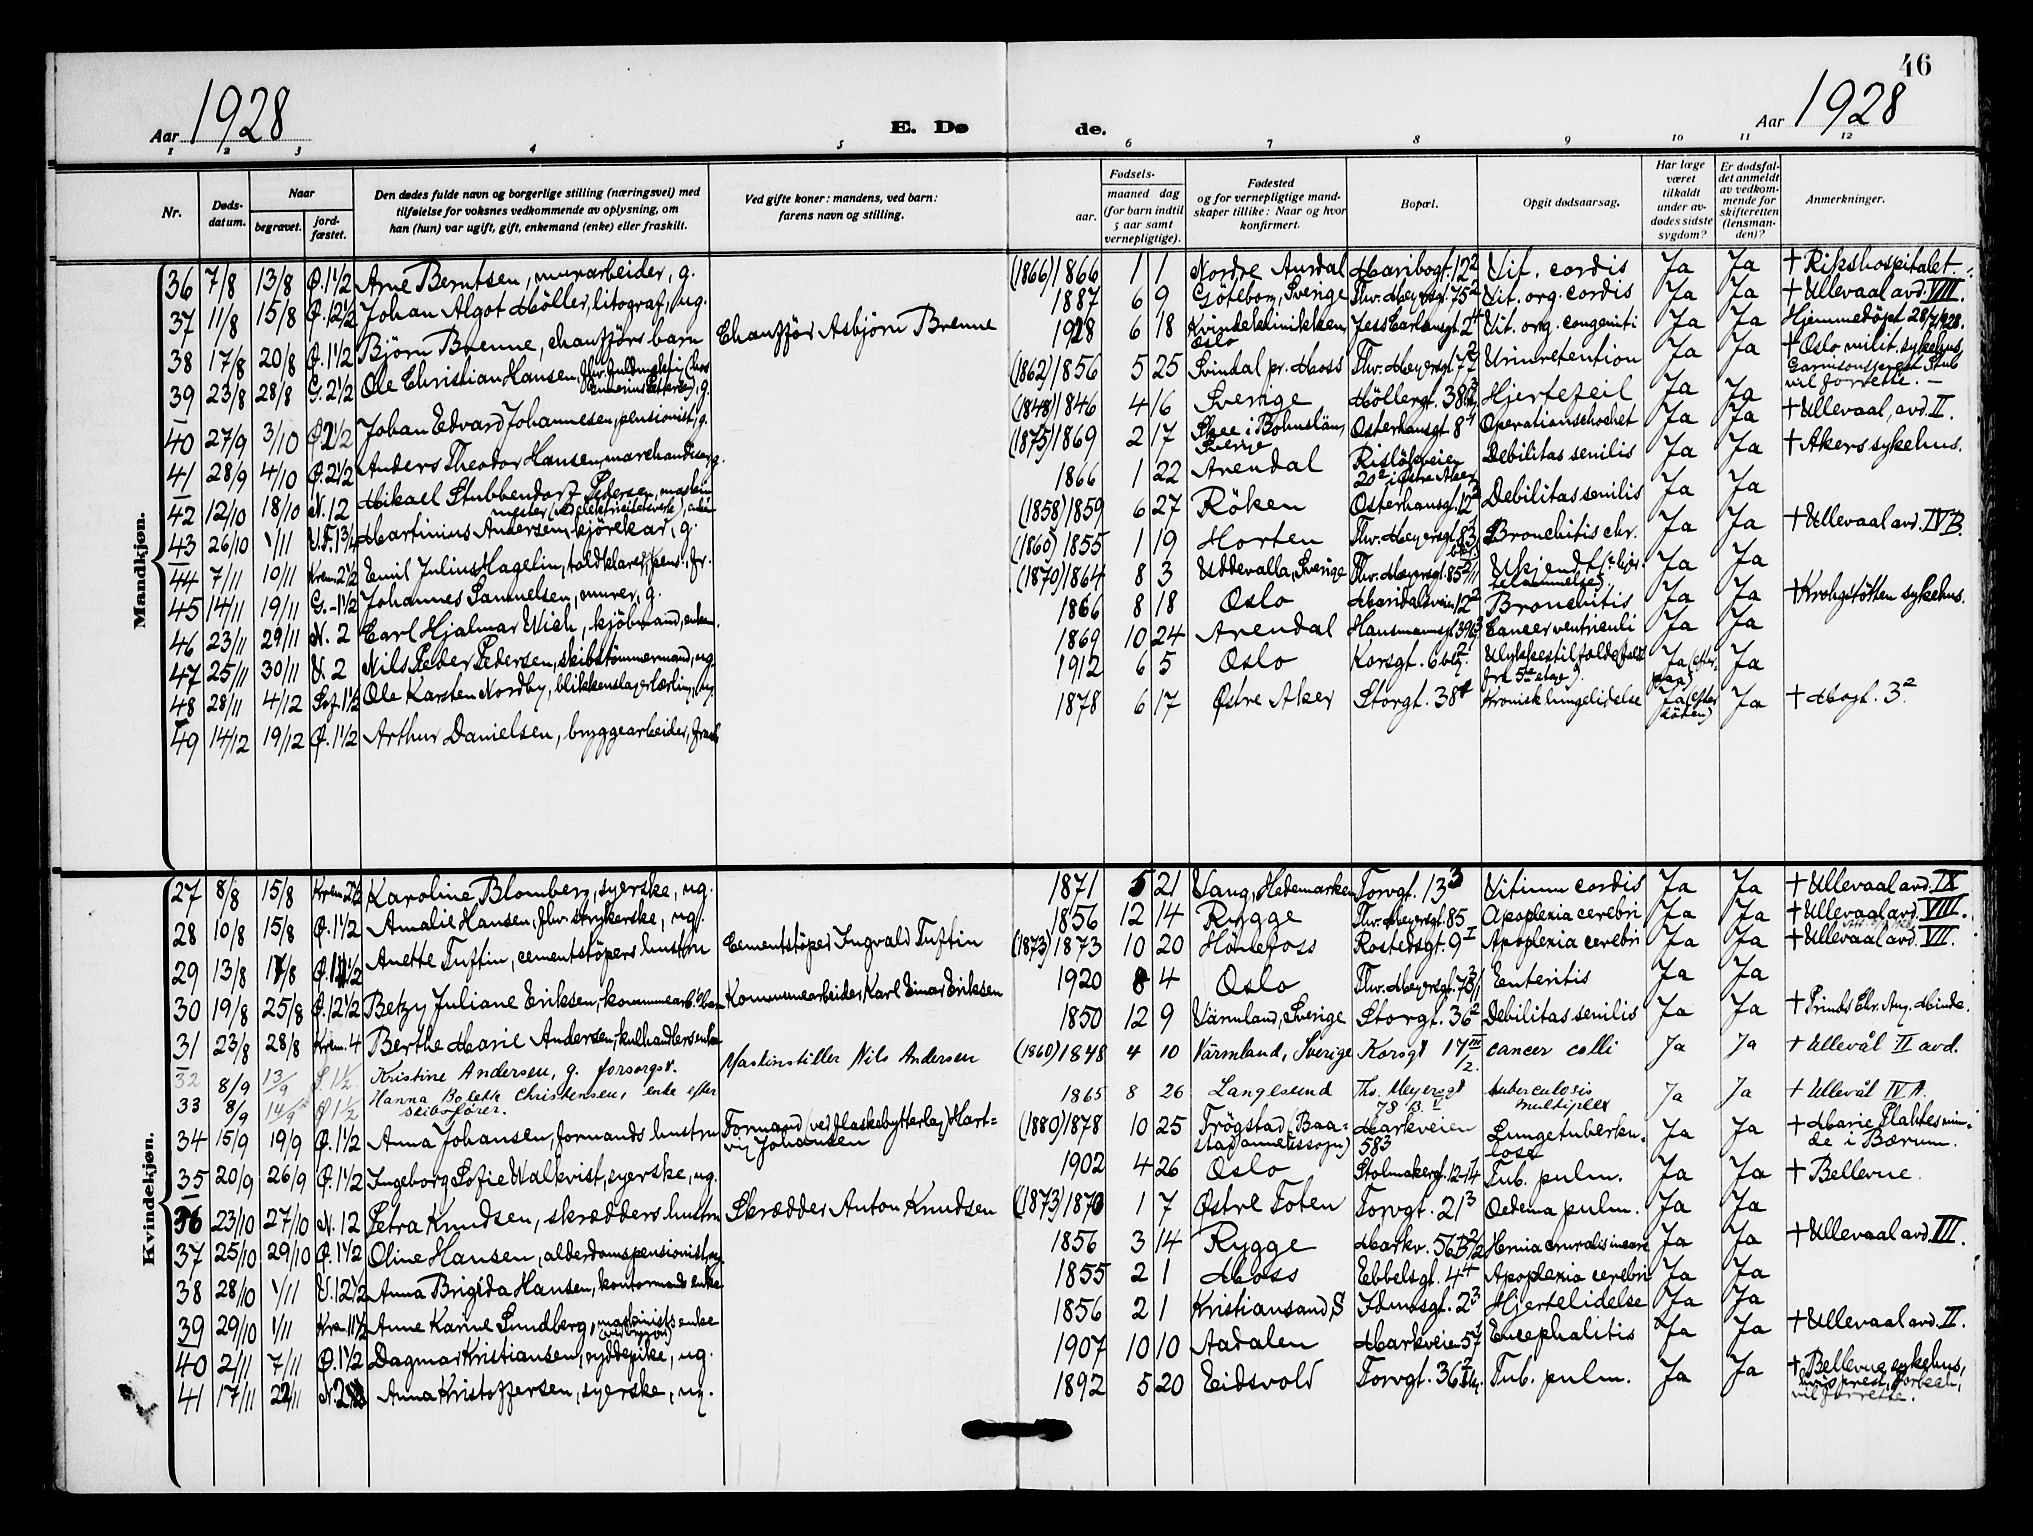 46
Aar 1928
E. Dø
de.
Aar 1928
1 2 3 4 5 6 7 8 9 10 11 12
Nr.
Døds-
datum.
Naar
begravet.
jord-
fæstet.
Den dødes fulde navn og borgerlige stilling (næringsvei) med
tilføielse for voksnes vedkommende av oplysning, om
han (hun) var ugift, gift, enkemand (enke) eller fraskilt.
Ved gifte koner: mandens, ved barn:
farens navn og stilling.
Fødsels-
aar.
maaned dag
(for barn indtil
5 aar samt
vernepligtige).
Fødested
og for vernepligtige mand-
skaper tillike: Naar og hvor
konfirmert.
Bopæl.
Opgit dødsaarsag.
Har læge
været
tilkaldt
under av-
dødes sidste
sygdom?
Er dødsfal-
det anmeldt
av vedkom-
mende for
skifteretten
(lensman-
den)?
Anmerkninger.
Mandkjøn.
36 7/8 13/8 Ø. 1 1/2 Arne Berntsen, murarbeider, g. (1866) 1866 1 1 Nordre Aurdal Maribogt. 12² Vit. cordis Ja Ja † Rikshospitalet.
37 11/8 15/8 Ø. 12 1/2 Johan Algot Möller, litograf, ug. 1887 6 9 Göteborg, Sverige Thv. Meyersgt. 75² Vit. org. cordis Ja Ja † Ullevaal avd. VIII.
38 17/8 20/8 Ø. 1 1/2 Björn Brenne, chaufförs barn Chauffør Asbjörn Brenne 1928 6 18 Kvindeklinikken Oslo Jess Carlsensgt. 2 Vit. org. congeniti Ja Ja Hjemmedöpt 28/7 1928.
39 23/8 28/8 G. 2 1/2 Ole Christian Hansen, g. (1862) 1856 5 25 Svindal pr. Moss Thv. Meyersgt. Urinretention Ja Ja † Oslo milit. sykehus, Garnisonsprest Stub vil forrette. —
40 27/9 3/10 Johan Edvard Johannesen, pensionist, g. (1848) 1846 4 16 Sverige Möllergt. 38 Hjertefeil Ja Ja † Ullevaal, avd. II.
41 28/9 4/10 Ø. 2 1/2 Anders Theodor Hansen, marchandiser, g. (1875) 1869 2 17 Skee i Bohuslän, Sverige Osterhausgt. 8 Operationschocket Ja Ja
42 12/10 18/10 N. 12 Mikael Stubbendorf Pedersen, 1866 1 22 Arendal Risløkveien 20 i Østre Aker Debilitas senilis Ja Ja † Akers sykehus.
43 26/10 1/11 V.F. 1 3/4 Martinius Andersen, kjörekar, g. (1858) 1859 6 27 Röken Osterhausgt. 12 Debilitas senilis Ja Ja
44 7/11 10/11 Krem. 2 1/2 Emil Julius Hagelin, toldklarer, pens., fr. (1860) 1855 1 19 Horten Thv. Meyersgt. 83 Bronchitis chr. Ja Ja † Ullevaal avd. IV B.
45 14/11 19/11 G. 1 1/2 Johannes Samuelsen, murer, g. (1870) 1864 8 3 Uddevalla, Sverige Thv. Meyersgt. 85 Ukjendt Ja Ja
46 23/11 29/11 N. 2 Carl Hjalmar Wich, kjöbmand, enkem. 1866 8 18 Oslo Maridalsveien 12² Bronchitis Ja Ja † Krohgstötten sykehus.
47 25/11 30/11 V. 2 Nils Peder Pedersen, skibstömmermand, ug. 1869 10 24 Arendal Hausmannsgt. 39 Cancer ventriculi Ja Ja
48 28/11 4/12 1 1/2 Ole Karsten Nordby, blikkenslagerlærling, ug 1912 6 5 Oslo Korsgt. 6 Ulykkestilfælde (falt fra 5te etage). Ja (efter paa) Ja
49 14/12 19/12 Ø. 1 1/2 Arthur Danielsen, bryggearbeider, frask. 1878 6 17 Østre Aker Storgt. 38 Kronisk lungelidelse Ja (efter döden) Ja † Mogt. 3².
Kvindekjøn.
27 8/8 15/8 Krem. Karoline Blomberg, syerske, ug. 1871 5 21 Vang, Hedemarken Torvgt. 13³ Vitium cordis Ja Ja † Ullevaal avd. IX
28 10/8 15/8 Ø. 1 1/2 Amalie Hansen, fhv. strykerske, ug. 1856 12 14 Rygge Thv. Meyersgt. 85 Apoplexia cerebri Ja Ja † Ullevaal avd. VIII.
29 13/8 17/8 Anette Tuftin, cementstöpers hustru Cementstöper Ingvald Tuftin (1873) 1873 10 20 Hönefoss Rostedsgt. 9 I Apoplexia cerebri Ja Ja † Ullevaal avd. VII.
30 19/8 25/8 Ø. 12 1/2 Betzy Juliane Eriksen, kommunearb.s barn Kommunearbeider Karl Einar Eriksen 1920 8 4 Oslo Thv. Meyersgt. Enteritis Ja Ja
31 23/8 28/8 Krem. 4 Berthe Marie Andersen, kulhandlers enke 1850 12 9 Värmland, Sverige Storgt. 36² Debilitas senilis Ja Ja † Prinds Chr. Aug. Minde.
32 8/9 13/9 1 1/2 Kristine Andersen, g. forsorgst. Maskinstiller Nils Andersen (1860) 1848 4 10 Värmland, Sverige Korsgt 17 cancer colli Ja Ja † Ullevål II avd.
33 8/9 14/9 Ø 1 1/2 Hanna Bolette Christensen, enke efter skibsfører. 1865 8 26 Langesund Ths. Meyersgt 78 B. V tuberculosis multiplex Ja Ja † Ullevål IV A.
34 15/9 19/9 Ø. 1 1/2 Anna Johansen, formands hustru Formand (ved flaskebytterlag) Hart=
vig Johansen (1880) 1878 10 25 Trögstad (Baastad annekssogn) Markveien 583 Lungetuberkulose Ja Ja † Marie Plahtes minde i Bærum.
35 20/9 26/9 Ø. 1 1/2 Ingeborg Sofie Valkvist, syerske, ug. 1902 4 26 Oslo Stolmakergt. 12-14 Tub. pulm. Ja Ja † Bellevue.
36 23/10 27/10 N. 12 Petra Knudsen, skrædders hustru Skrædder Anton Knudsen (1873) 1870 1 7 Østre Toten Torvgt. 21³ Oedema pulm. Ja Ja
37 25/10 29/10 Ø. 1 1/2 Oline Hansen, alderdomspensionist, ug. 1856 3 14 Rygge Markv. 56 Hernia cruralis incarc. Ja Ja † Ullevaal avd. III.
38 28/10 1/11 V. 12 1/2 Anna Brigida Hansen, kontormands enke 1855 2 1 Moss Ebbelsgt. 4⁴ Apoplexia cerebri Ja Ja
39 29/10 1/11 Kre. 11 1/2 Anne Karine Sundberg, maskinists enke 1856 2 1 Kristiansand S Idunsgt. 2³ Hjertelidelse Ja Ja
40 2/11 7/11 Ø. 1 1/2 Dagmar Kristiansen, ryddepike, ug. 1907 10 10 Aadalen Markveien 57 Encephalitis Ja Ja † Ullevaal avd. II.
41 17/11 22/11 Anna Kristoffersen, syerske, ug. 1892 5 20 Eidsvold Torvgt. 36 Tub. pulm. Ja Ja † Bellevue sykehus, hvis prest, Torbech, vil forrette.